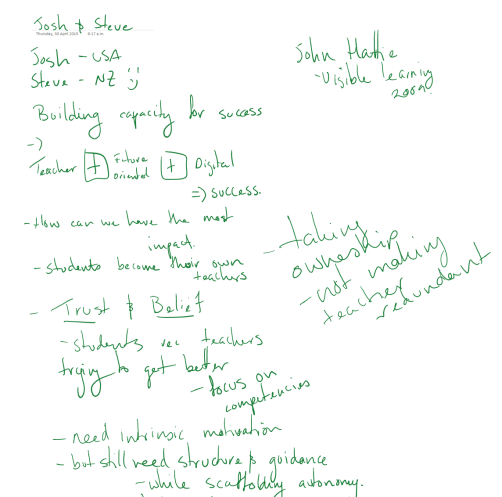 Josh & Steve
Thursday, 30 April 2015 9:17 a.m.
Josh - USA
Steve - NZ :)
John Hattie
- Visible learning
2009.
Building capacity for success
->
Teacher + Future oriented + Digital
=> success.
- How can we have the most
impact.
- students become their own
teachers
- taking
ownership
- not making
teacher
redundant
- Trust & Belief
- students rec teachers
trying to get better
- focus on
competencies
- need intrinsic motivation
- but still need structure & guidance
- while scaffolding autonomy.